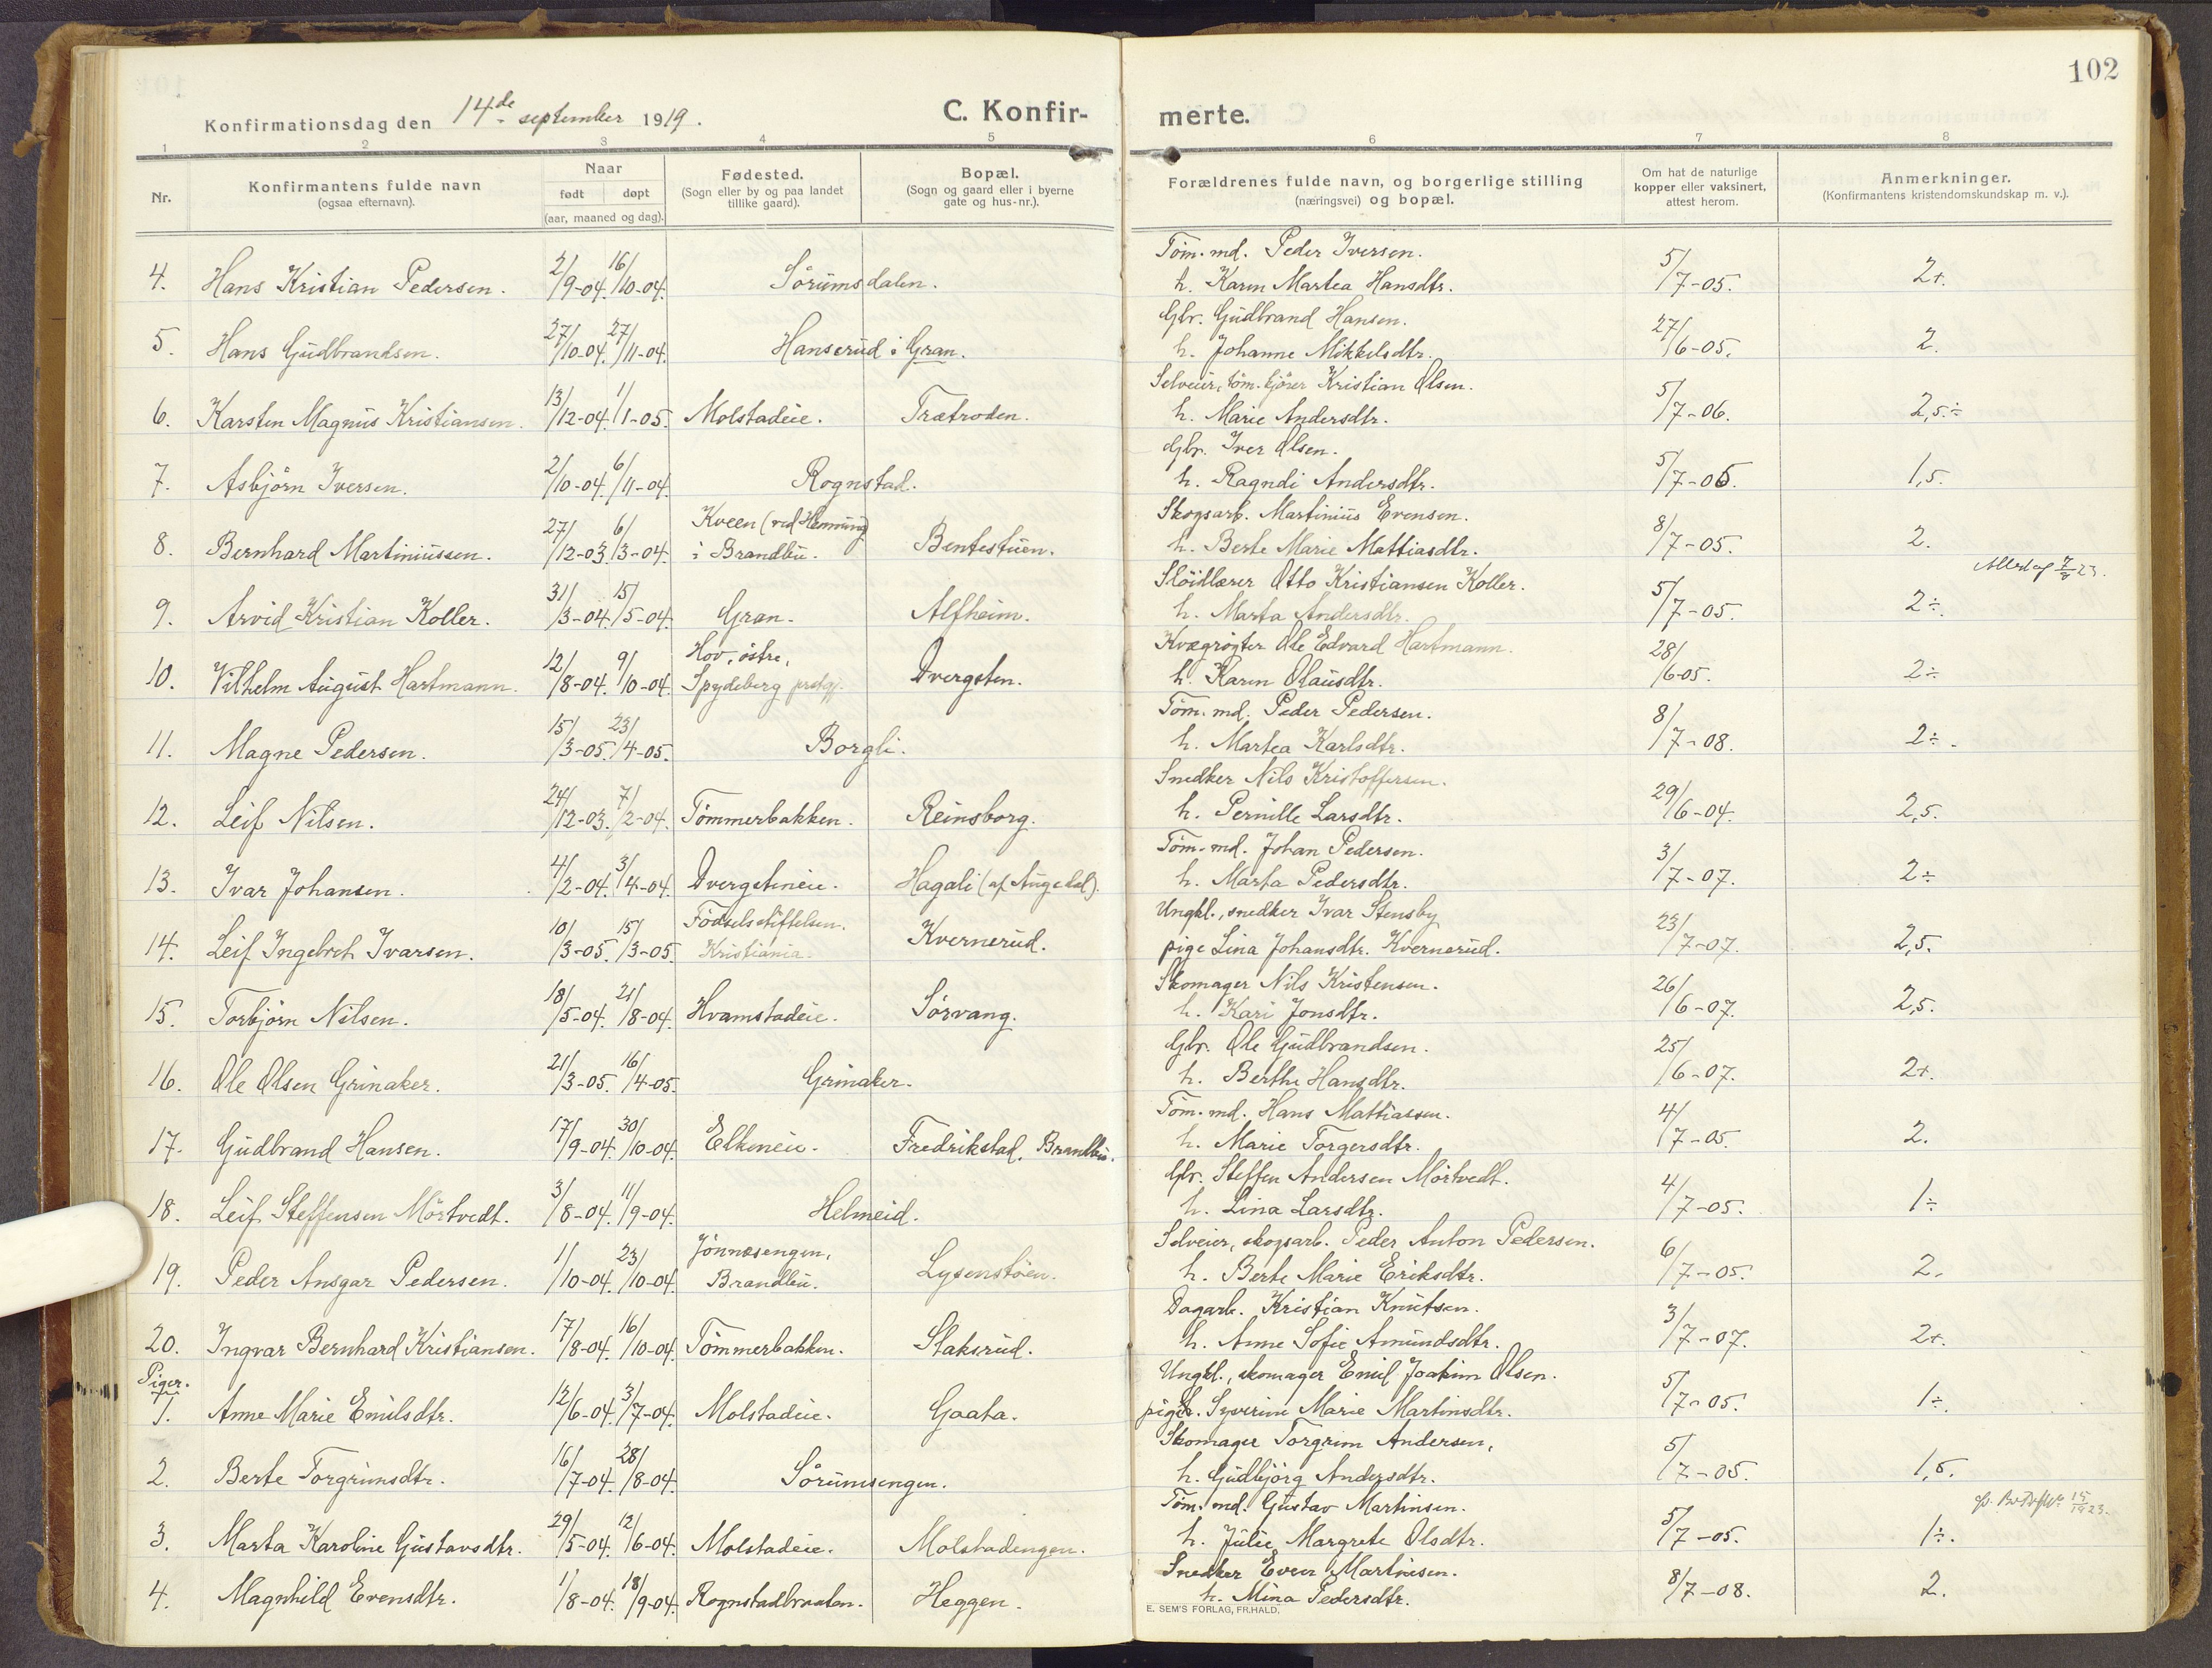 102
Konfirmationsdag den 14de september 1919.
C. Konfir-
merte.
1 2 3 4 5 6 7 8
Nr.
Konfirmantens fulde navn
(ogsaa efternavn).
Naar
født døpt
(aar, maaned og dag).
Fødested.
(Sogn eller by og paa landet
tillike gaard).
Bopæl.
(Sogn og gaard eller i byerne
gate og hus-nr.).
Forældrenes fulde navn, og borgerlige stilling
(næringsvei) og bopæl.
Om hat de naturlige
kopper eller vaksinert,
attest herom.
Anmerkninger.
(Konfirmantens kristendomskundskap m. v.).
Töm. md. Peder Iversen.
4. Hans Kristian Pedersen. 2/9-04. 16/10-04. Sörumsdalen. h. Karen Martea Hansdtr. 5/7-05. 2+.
Gbr. Gudbrand Hansen.
5. Hans Gudbrandsen. 27/10-04. 27/11-04. Hanserud i Gran. h. Johanne Mikkelsdtr. 27/6-05. 2.
Selveier, töm. kjörer Kristian Olsen.
6. Karsten Magnus Kristiansen. 13/12-04. 1/1-05. Molstadeie. Trætroden. h. Marie Andersdtr. 5/7-06. 2,5÷
Gbr. Iver Olsen.
7. Asbjörn Iversen. 2/10-04. 6/11-04. Rognstad. h. Ragndi Andersdtr. 5/7-05. 1,5.
Kveen (ved Henning) Skogsarb. Martinius Evensen.
8. Bernhard Martiniussen. 27/12-03. 6/3-04. i Brandbu. Bentestuen. h. Berte Marie Mattiasdtr. 8/7-05. 2.
Slöidlærer Otto Kristiansen Koller.
9. Arvid Kristian Koller. 31/3-04. 15/5-04. Gran. Alfheim. h. Marta Andersdtr. 5/7-05. 2÷.
Hov, östre, Kvægrögter Ole Edvard Hartmann.
10. Vilhelm August Hartmann. 12/8-04. 9/10-04. Spydeberg prstgj. Dvergsten. h. Karen Olausdtr. 28/6-05. 2÷
Töm. md. Peder Pedersen.
11. Magne Pedersen. 15/3-05. 23/4-05. Borgli. h. Martea Karlsdtr. 8/7-08. 2÷.
Snedker Nils Kristoffersen.
12. Leif Nilsen. 24/12-03. 7/2-04. Tömmerbakken. Reinsborg. h. Pernille Larsdtr. 29/6-04. 2,5.
Töm. md. Johan Pedersen.
13. Ivar Johansen. 4/2-04. 3/4-04. Dvergsteneie. Hagali (af Augedal). h. Marta Pedersdtr. 3/7-07. 2÷
Födselsstiftelsen. Ungkl., snedker Ivar Stensby
14. Leif Ingebret Ivarsen. 10/3-05. 15/3-05. Kristiania. Kvernerud. pige Lina Johansdtr. Kvernerud. 23/7-07. 2,5.
Skomager Nils Kristensen.
15. Torbjörn Nilsen. 18/5-04. 21/8-04. Hvamstadeie. Sörvang. h. Kari Jonsdtr. 26/6-07. 2,5.
Gbr. Ole Gudbrandsen.
16. Ole Olsen Grinaker. 21/3-05. 16/4-05. Grinaker. h. Berthe Hansdtr. 25/6-07. 2+.
Töm. md. Hans Mattiassen.
17. Gudbrand Hansen. 17/9-04. 30/10-04. Elkeneie. Fredrikstad, Brandbu. h. Marie Torgersdtr. 4/7-05. 2.
Gbr. Steffen Andersen Mörtvedt.
18. Leif Steffensen Mörtvedt. 3/8-04. 11/9-04. Helmeid. h. Lina Larsdtr. 4/7-05. 1÷
Jönnesengen, Selveier, skogsarb. Peder Anton Pedersen.
19. Peder Ansgar Pedersen. 1/10-04. 23/10-04. Brandbu. Lysenstöen. h. Berte Marie Eriksdtr. 6/7-05. 2.
Dagarb. Kristian Knutsen.
20. Ingvar Bernhard Kristiansen. 17/8-04. 16/10-04. Tömmerbakken. Staksrud. h. Anne Sofie Amundsdtr. 3/7-07. 2+.
Piger. Ungkl., skomager Emil Joakim Olsen.
1. Anne Marie Emilsdtr. 12/6-04. 3/7-04. Molstadeie. Gaata. pige. Syverine Marie Martinsdtr. 5/7-05. 1÷.
Skomager Torgrim Andersen,
2. Berte Torgrimsdtr. 16/7-04. 28/8-04. Sörumsengen. h. Gudbjörg Andersdtr. 5/7-05. 1,5.
Töm. md. Gustav Martinsen.
3. Marta Karoline Gustavsdtr. 29/5-04. 12/6-04. Molstadeie. Molstadengen. h. Julie Margrete Olsdtr. 5/7-05. 1÷.
Snedker Even Martinsen.
4. Magnhild Evensdtr. 1/8-04. 18/9-04. Rognstadbraaten. Heggen. h. Mina Pedersdtr. 8/7-08. 2.
E. SEM'S FORLAG, FR.HALD.